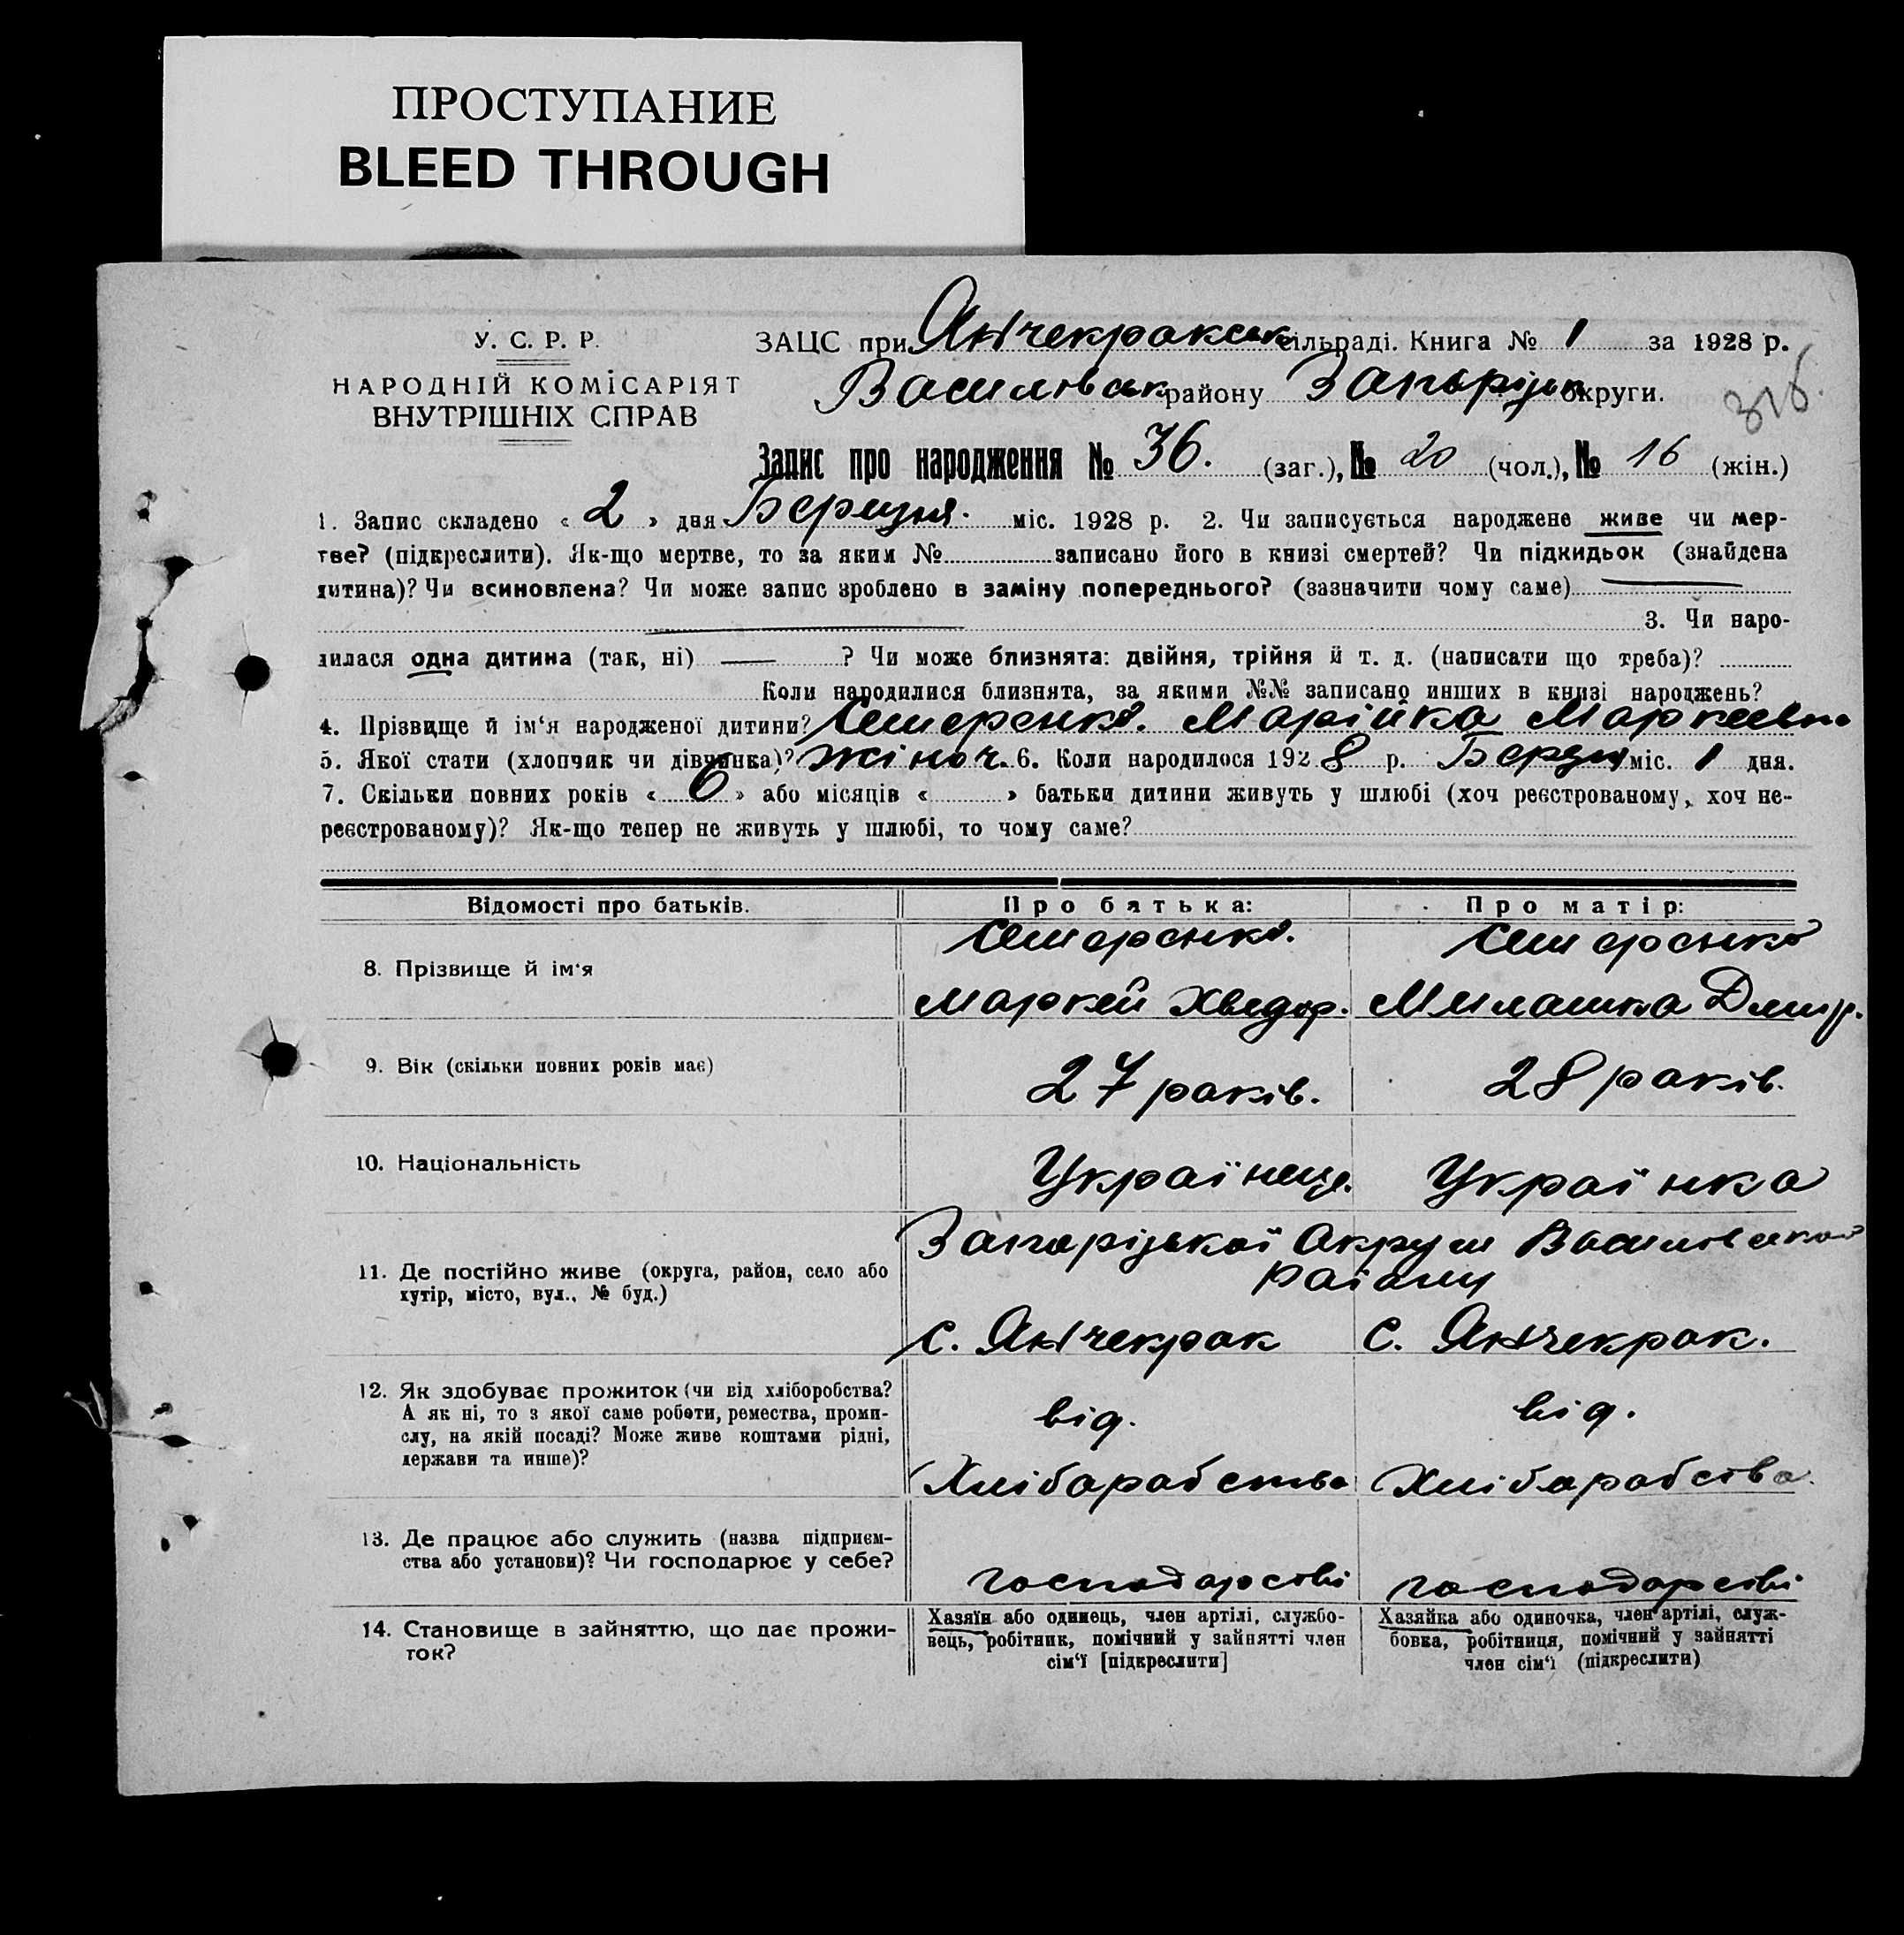 ПРОСТУПАНИЕ
BLEED THROUGH
У. С. Р. Р.
НАРОДНІЙ КОМІСАРІЯТ
ВНУТРІШНІХ СПРАВ
ЗАЦС при Янчекракськ сільраді. Книга № 1 за 1928 р.
Василівськ району Запоріжськ округи.
Запис про народження № 36. (заг.), № 20 (чол.), № 16 (жін.)
1. Запис складено « 2 » дня Березня. міс. 1928 р. 2. Чи записується народжене живе чи мер-
тве? (підкреслити). Як-що мертве, то за яким № записано його в книзі смертей? Чи підкидьок (знайдена
дитина)? Чи всиновлена? Чи може запис зроблено в заміну попереднього? (зазначити чому саме)
3. Чи наро-
дилася одна дитина (так, ні) ? Чи може близнята: двійня, трійня й т. д. (написати що треба)?
Коли народилися близнята, за якими №№ записано инших в книзі народжень?
4. Прізвище й ім‘я народженої дитини? Марійка Маркеевна
5. Якої стати (хлопчик чи дівчинка)? жіноч. 6. Коли народилося 1928 р. Берзня міс. 1 дня.
7. Скільки повних років « 6 » або місяців « » батьки дитини живуть у шлюбі (хоч реєстрованому, хоч не-
реєстрованому)? Як-що тепер не живуть у шлюбі, то чому саме?
Відомості про батьків.
Про батька:
Про матір:
8. Прізвище й ім‘я
Маркей Хведор.
Милашка Дмитр.
9. Вік (скільки повних років має)
27 раків.
28 раків.
10. Національність
Українець.
Українка
11. Де постійно живе (округа, район, село або
хутір, місто, вул., № буд.)
Запаріжськой Округи Василівськой
раіану
с. Янчекрак
с. Янчекрак.
12. Як здобуває прожиток (чи від хліборобства?
А як ні, то з якої саме роботи, ремества, проми-
слу, на якій посаді? Може живе коштами рідні,
держави та инше)?
від.
Хлібарабства
від.
Хлібарабства.
13. Де працює або служить (назва підприєм-
ства або установи)? Чи господарює у себе?
господарстві
господарстві
14. Становище в зайняттю, що дає прожи-
ток?
Хазяїн або одинець, член артілі, службо-
вець, робітник, помічний у зайнятті член
сім‘ї [підкреслити]
Хазяйка або одиночка, член артілі, служ-
бовка, робітниця, помічний у зайнятті
член сім‘ї (підкреслити)